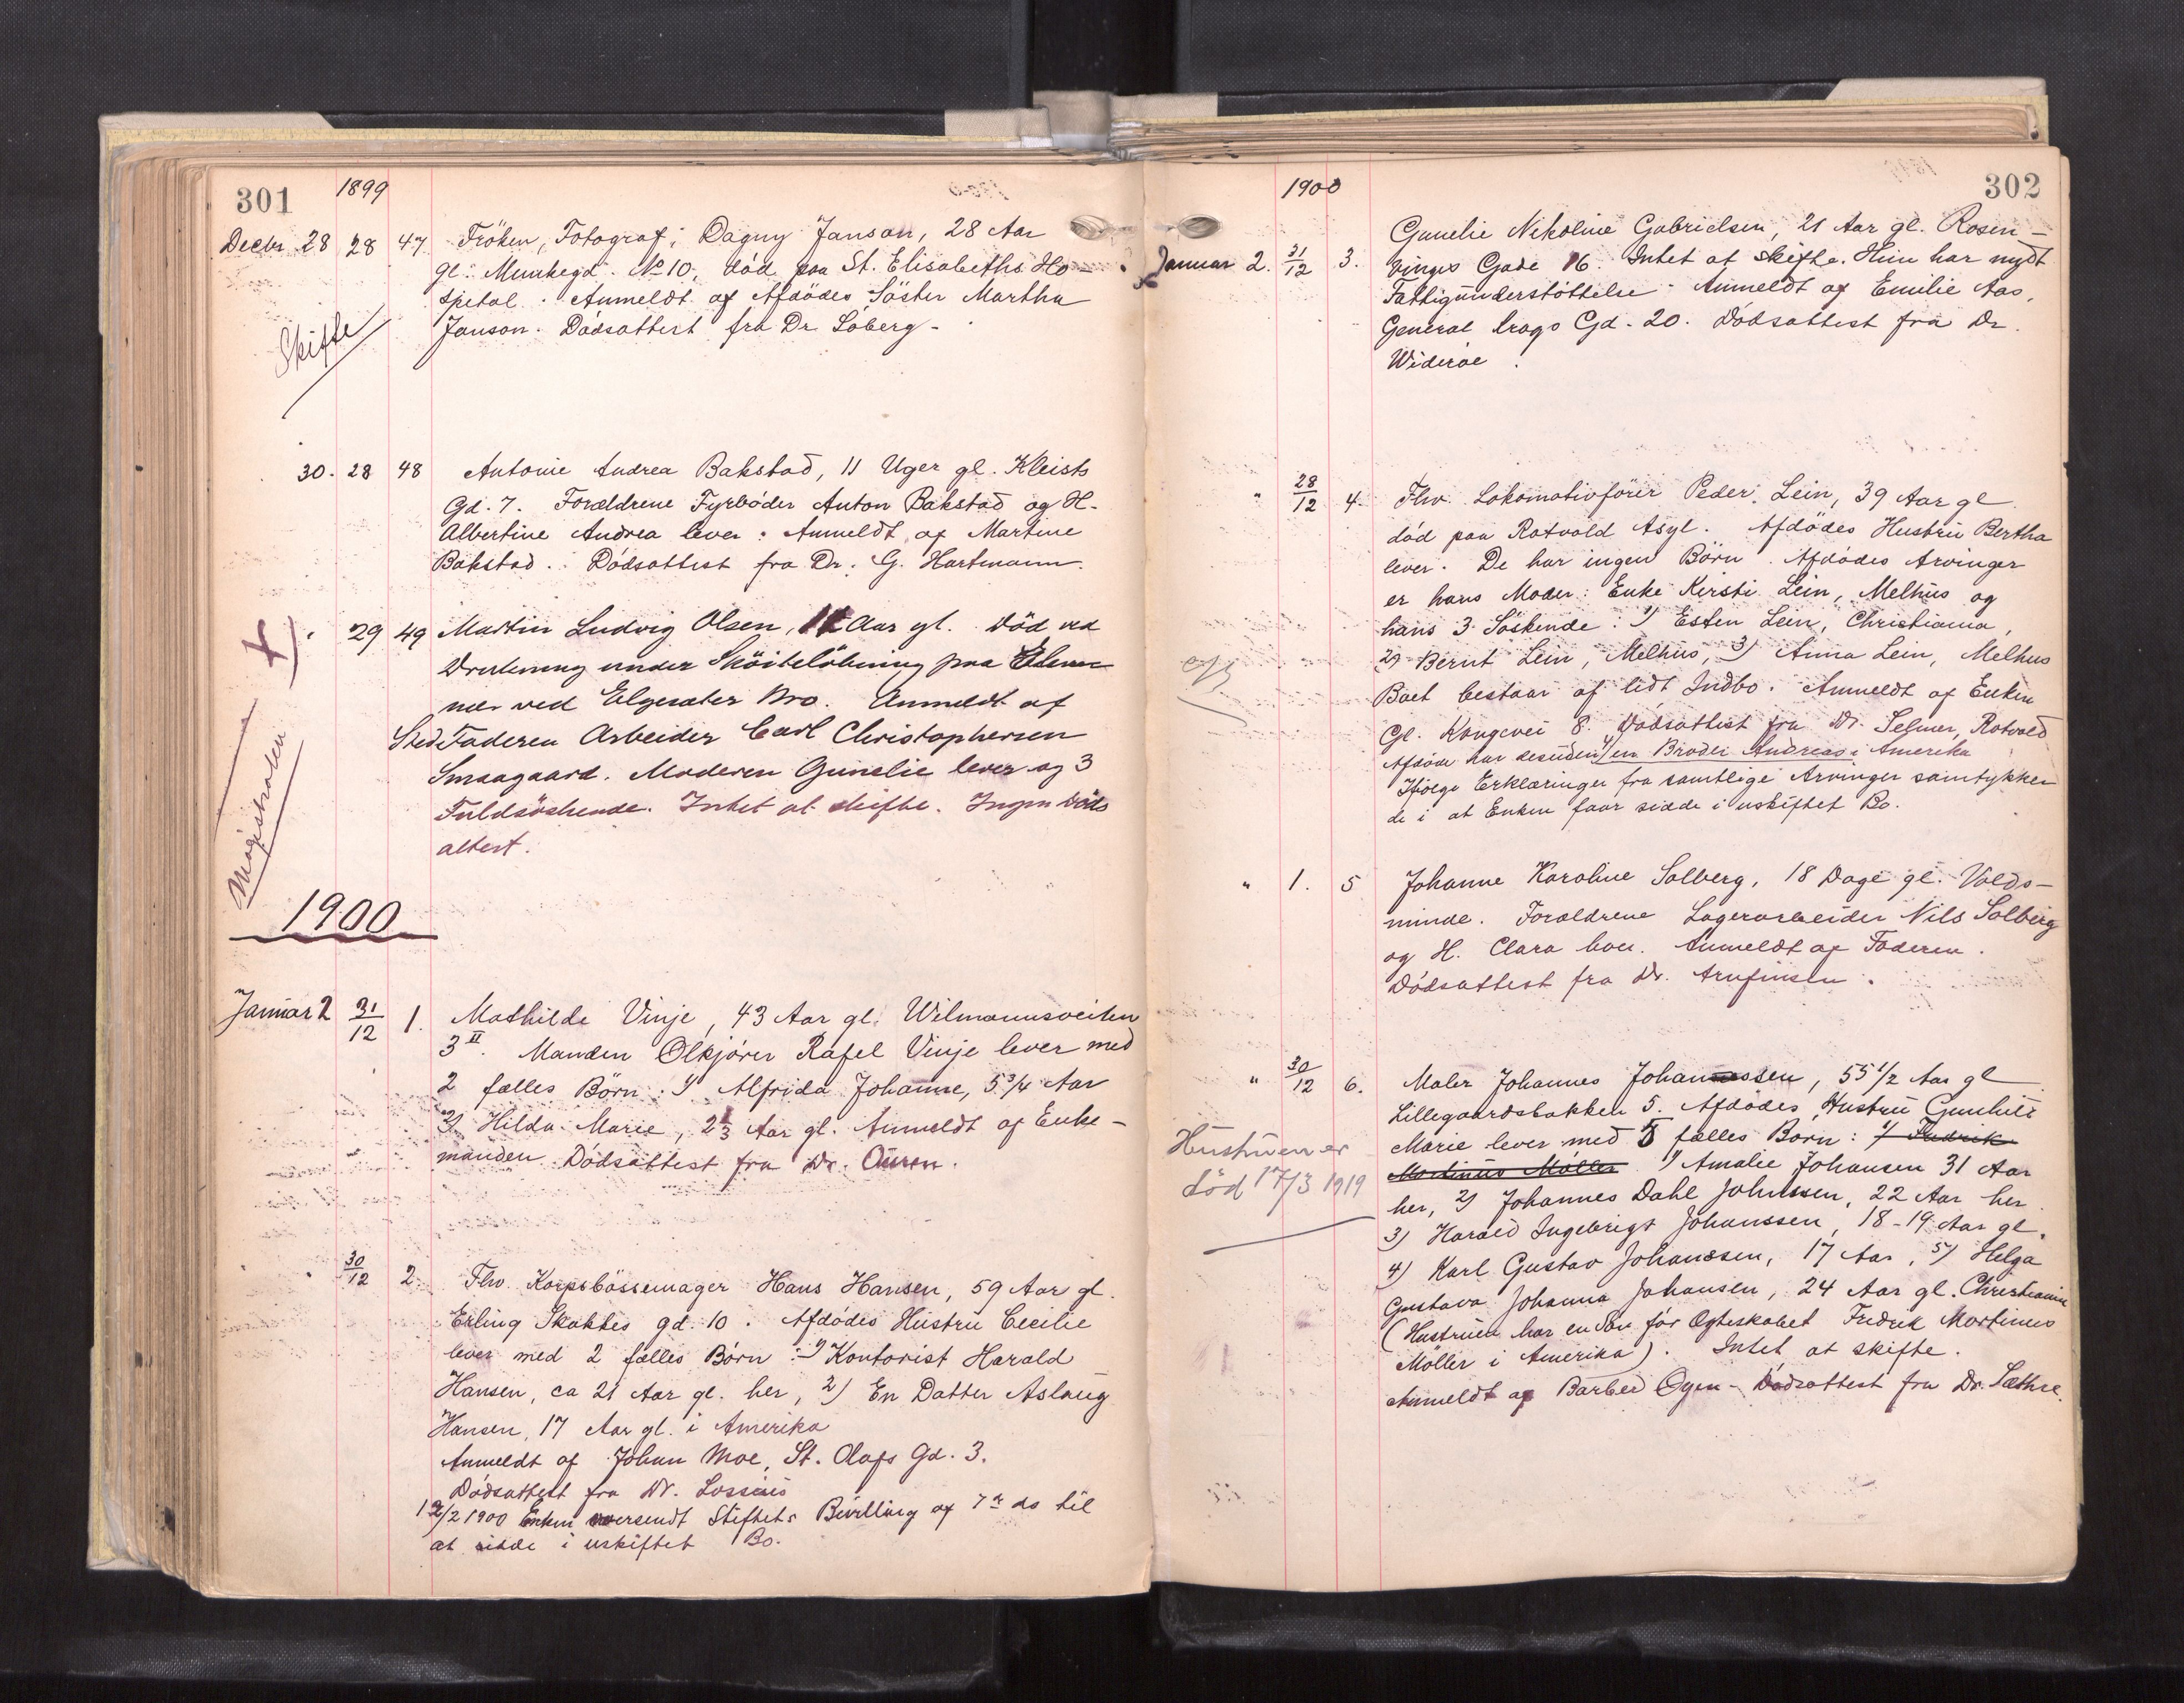 301
1899
Decbr 28 28 47 Fröken, Fotograf, Dagny Janson, 28 Aar
gl. Munkegd. No 10, död paa St. Elisabeths Ho-
spital. Anmeldt af Afdödes Söster Martha
Janson. Dödsattest fra Dr Soberg-
Skifte
30. 28 48 Antonie Andrea Bakstad, 11 Uger gl. Kleists
Gd. 7. Forældrene Fyrböder Anton Bakstad og H.
Albertine Andrea lever. Anmeldt af Martine
Bakstad. Dödsattest fra Dr. G. Hartmann.
29 49 Martin Ludvig Olsen, Aar gl. Död ved
Drukning under Sköitelöbning paa
ved Elgesæter Bro. Anmeldt af
Stedfaderen Arbeider Carl Christophersen
Smaagaard. Moderen Gunelie lever og 3
Fuldsöskende. Intet at skifte. Ingen Döds
attest.
Magistraten
1900
Januar 2 31/12 1. Mathilde Vinje, 43 Aar gl. Wilmannsveiten
3 II. Manden Ölkjörer Rafel Vinje lever med
2 fælles Börn: 1) Alfrida Johanne, 5 3/4 Aar
2) Hilda Marie, 2 1/3 Aar gl. Anmeldt af Enke-
manden Dödsattest fra Dr. Aüren.
" 30/12 2. Fhv. Korpsbössemager Hans Hansen, 59 Aar gl.
Erling Skakkes gd. 10. Afdödes Hustru Cecilie
lever med 2 fælles Börn: 1) Kontorist Harald
Hansen, ca 21 Aar gl. her, 2) En Datter Aslaug
Hansen, 17 Aar gl. i Amerika
Anmeldt af Johan Moe, St. Olafs Gd. 3.
Dödsattest fra Dr. Lossius
12/2 1900 Enken oversendt Stiftets Bevilling af 7de ds til
at sidde i uskiftet Bo.
302
1900
Januar 2. 31/12 3. Gunelie Nikoline Gabrielsen, 21 Aar gl. Rosen-
vinges Gade 16. Intet at skifte. Hun har nydt
Fattigunderstöttelse. Anmeldt af Emilie Aas,
General Krags Gd. 20. Dödsattest fra Dr.
Wideröe.
" 28/12 4. Fhv. Lokomotivförer Peder Lein, 39 Aar gl
död paa Rotvold Asyl. Afdödes Hustru Bertha
lever. De har ingen Börn. Afdödes Arvinger
er hans Moder: Enke Kirsti Lein, Melhus og
hans 3 Söskende: 1) Esten Lein, Christiania,
2) Bernt Lein, Melhus, 3) Anna Lein, Melhus
Boet bestaar af lidt Indbo. Anmeldt af Enken
Gl. Kongevei 8. Dödsattest fra Dr. Selmer, Rotvold
Afdöde har desuden 4) en Broder Andreas i Amerika
Ifölge Erklæringer fra samtlige Arvinger samtykker
de i at Enken faar sidde i uskiftet Bo.
" 1. 5 Johanne Karoline Solberg, 18 Dage gl. Volds-
minde. Forældrene Lagerarbeider Nils Solberg
og H. Clara lever. Anmeldt af Faderen.
Dödsattest fra Dr. Arnfinsen.
" 30/12 6. Maler Johannes Johannessen, 55 1/2 Aar gl
Lillegaardsbakken 5. Afdödes Hustru Gunhild
Marie lever med 5 fælles Börn: 1) Fredrik
Martinus Möller 1) Amalie Johansen 31 Aar
her, 2) Johannes Dahl Johnssen, 22 Aar her
3) Harald Ingebrigt Johanssen, 18-19 Aar gl.
4) Karl Gustav Johanssen, 17 Aar, 5) Helga
Gustava Johanna Johansen, 24 Aar gl. Christiania
(Hustruen har en Sön för Ægteskabet Fredrik Martinus
Möller i Amerika). Intet at skifte.
Anmeldt af Barber Oyen- Dödsattest fra Dr. Sæthre.
Hustruen er
död 17/3 1919